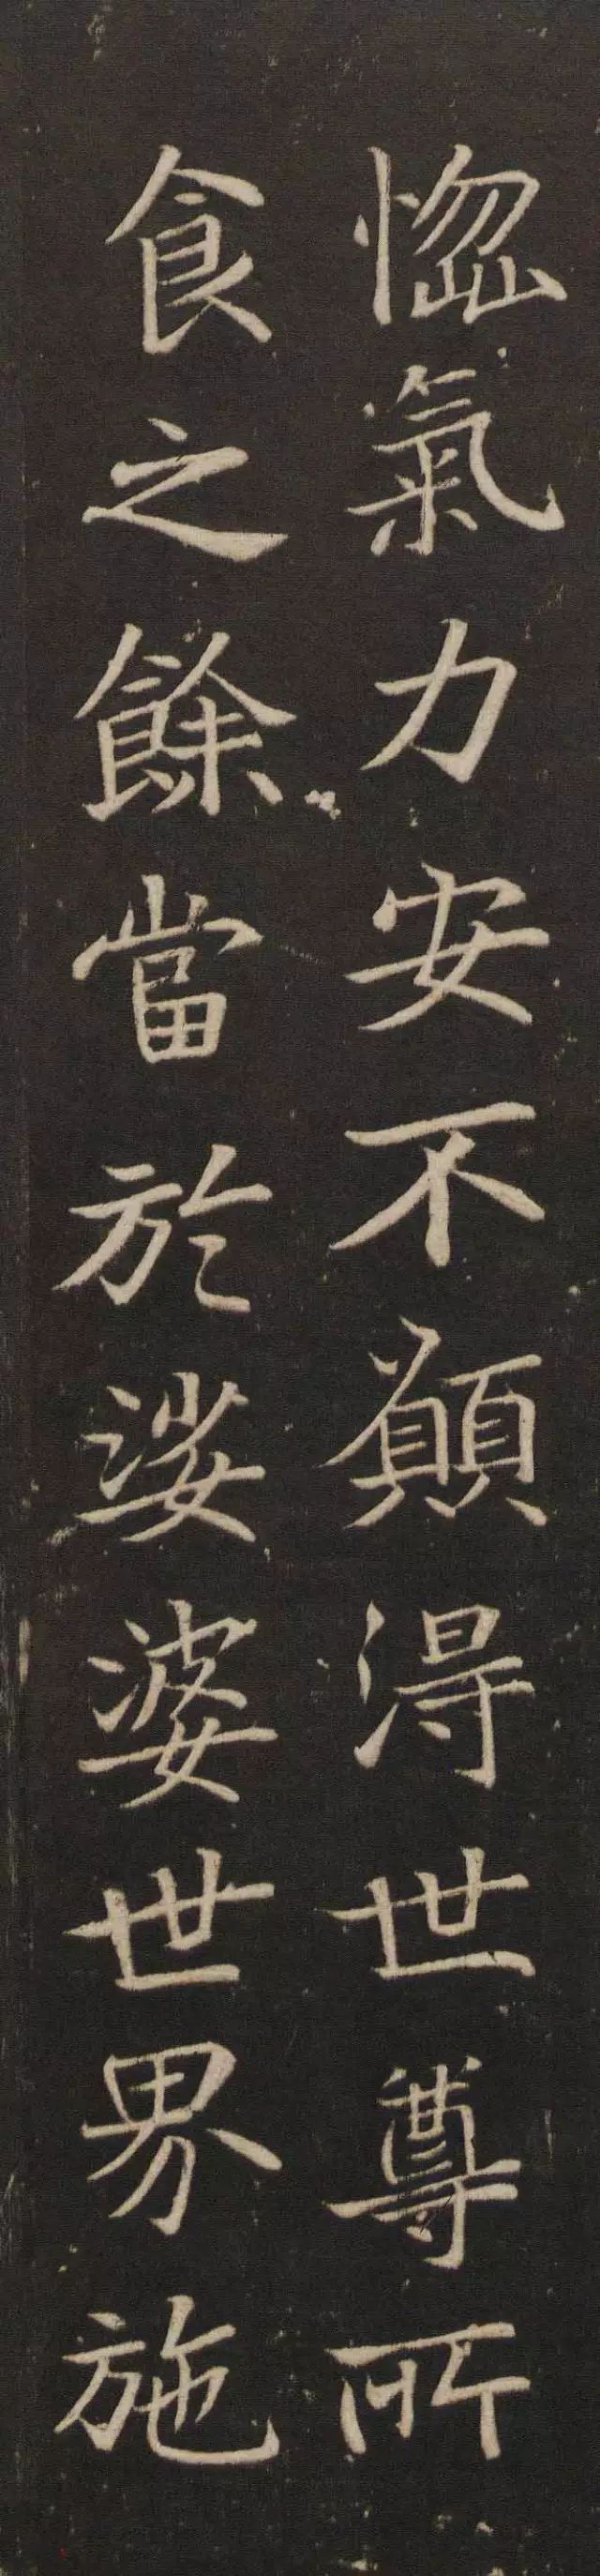 惱氣力安不願得世尊所
食之餘當於娑婆世界施